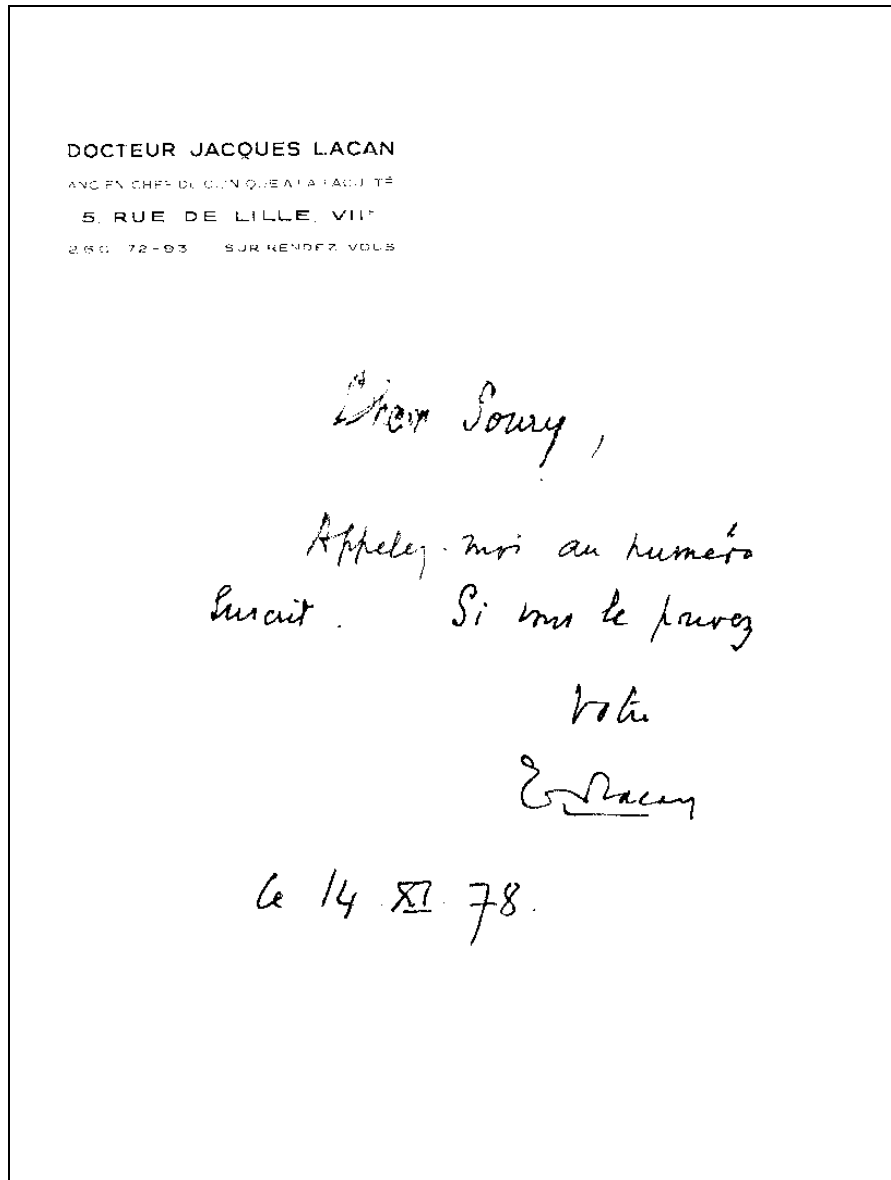 DOCTEUR JACQUES LACAN
ANCIEN CHEF DE CLINIQUE A LA FACULTÉ
5, RUE DE LILLE, VIIe
260 72-93 SUR RENDEZ-VOUS
Cher Soury,
Appelez-moi au numéro
Suscrit. Si vous le pouvez
Votre
Lacan
Ce 14 XI 78.